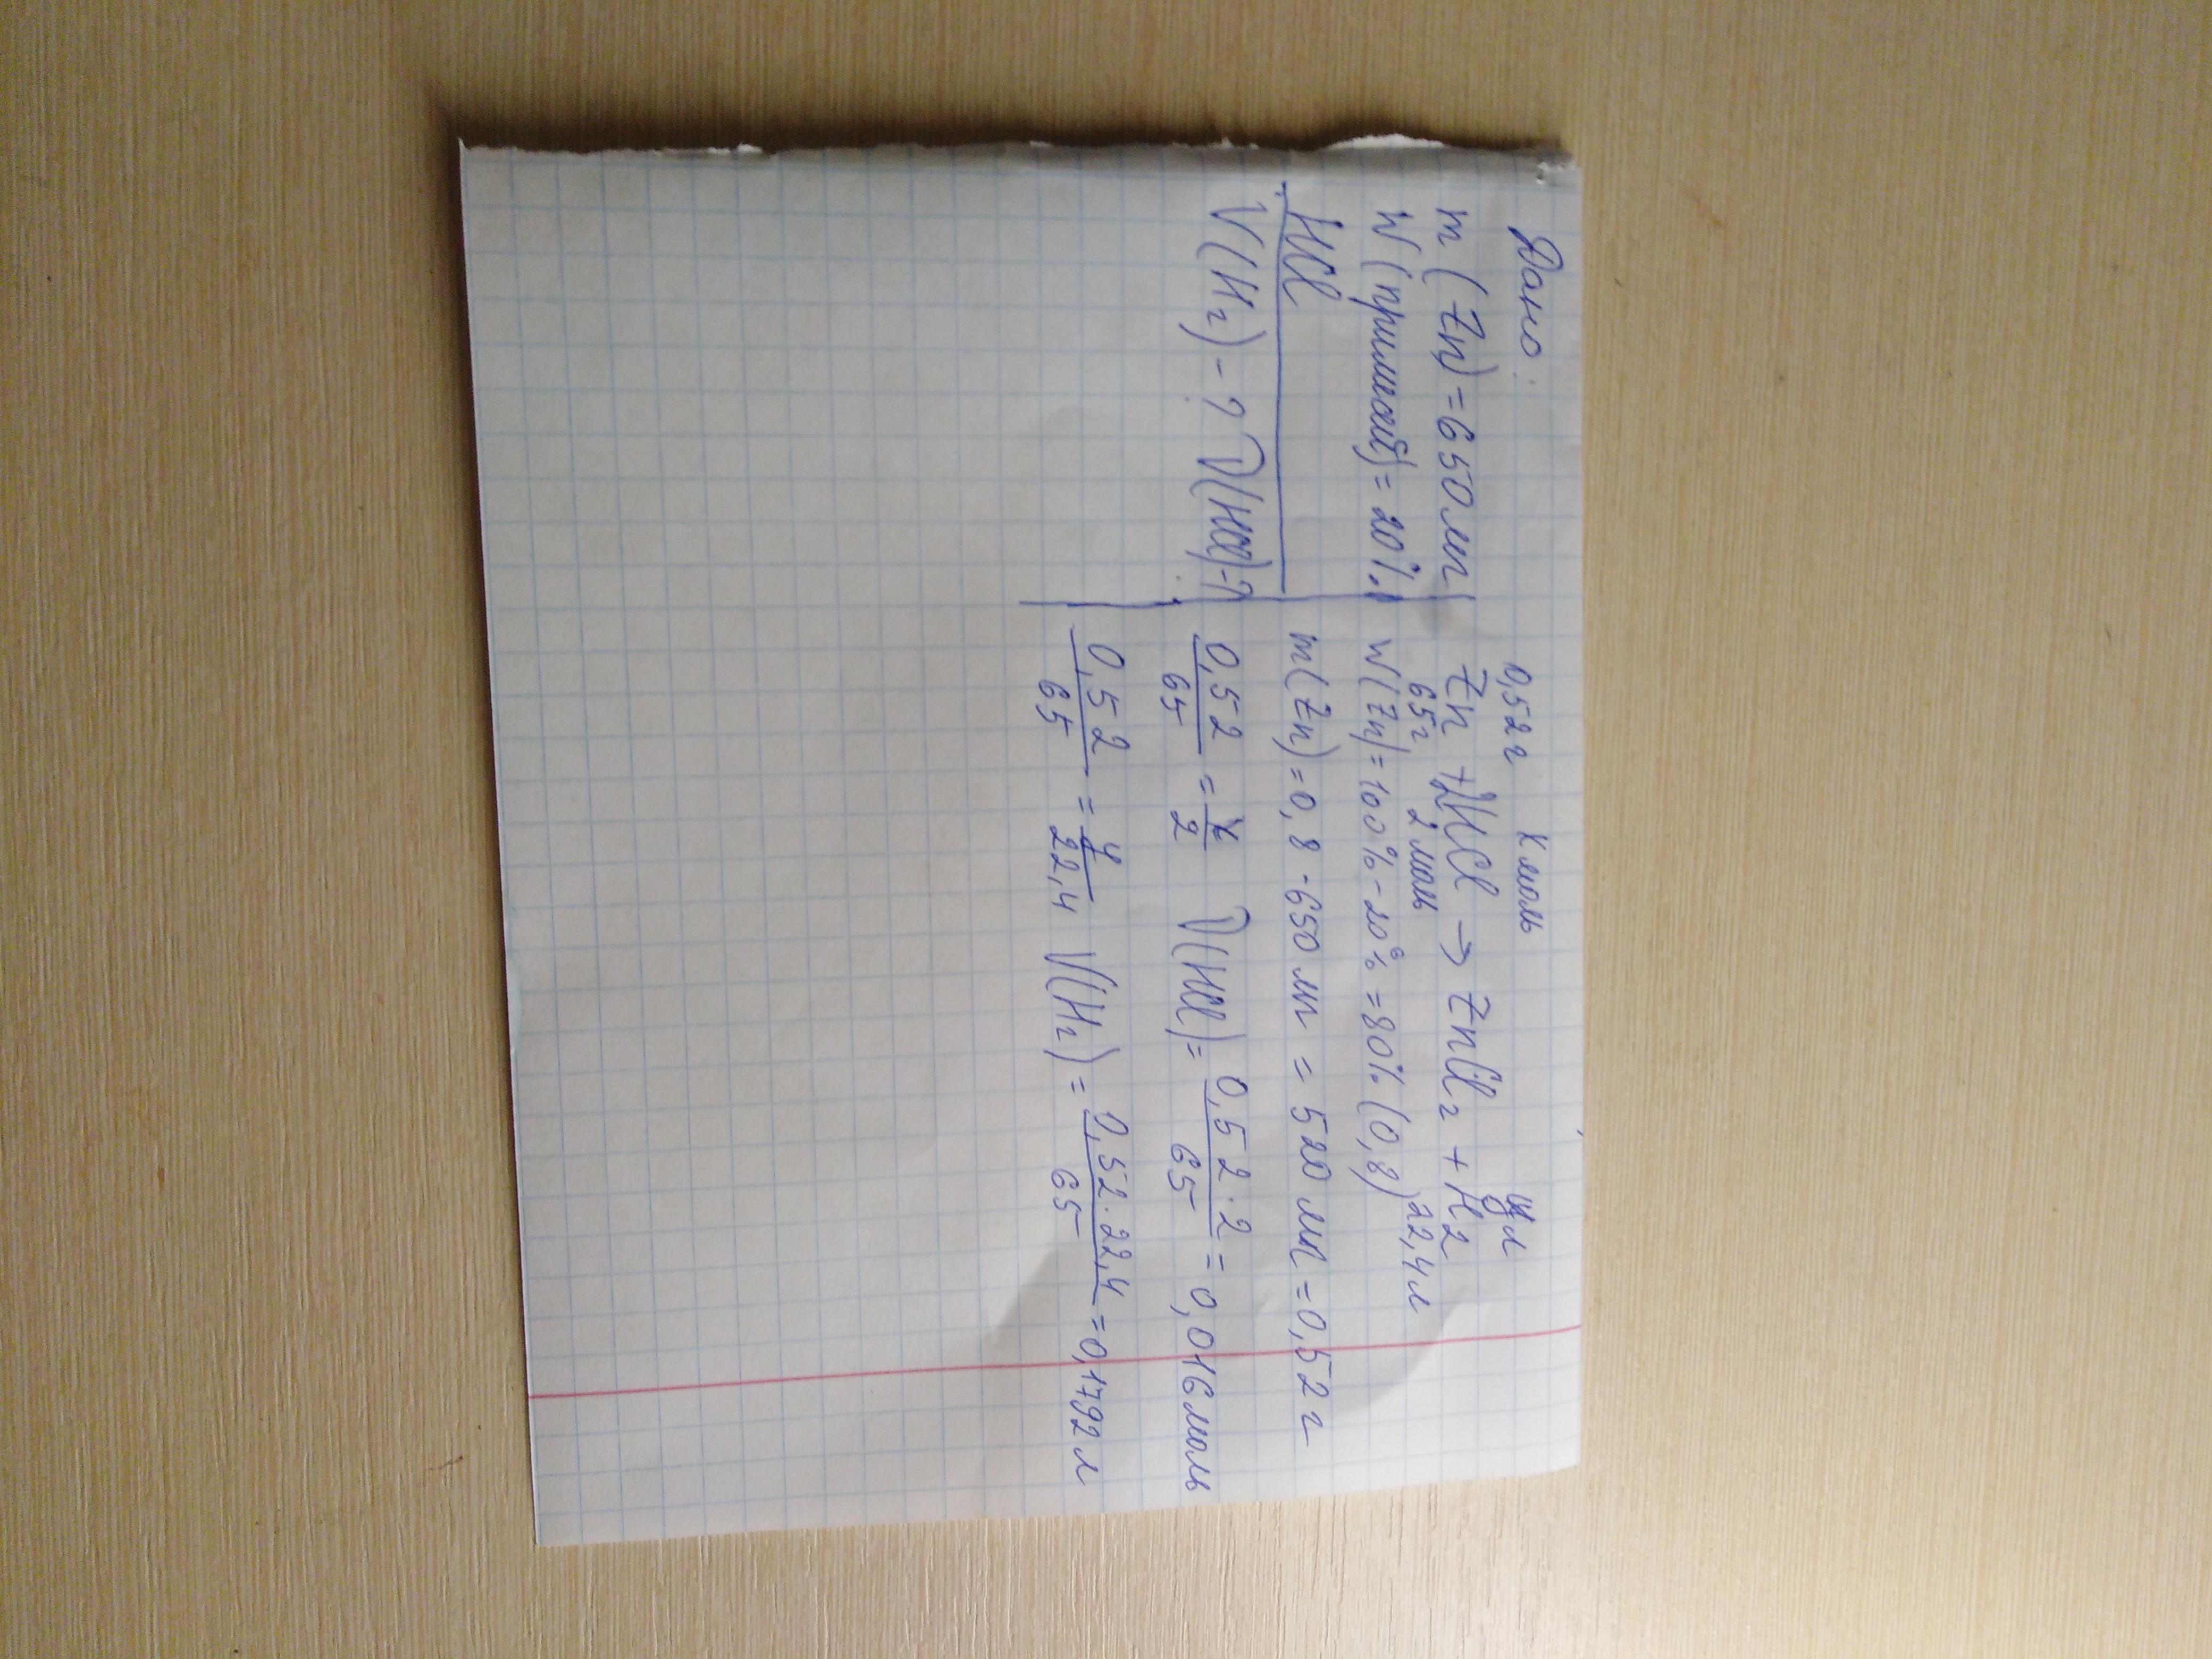 Дано:
m (Zn) = 650 мг
W (примесей) = 20%
HCl
V(H₂) - ? ν(HCl) - ?
0,52 г x моль y л
Zn + 2HCl → ZnCl₂ + H₂
65 г 2 моль 22,4 л
W(Zn) = 100% - 20% = 80% (0,8)
m(Zn) = 0,8 · 650 мг = 520 мг = 0,52 г
0,52/65 = x/2 ν(HCl) = 0,52·2/65 = 0,016 моль
0,52/65 = y/22,4 V(H₂) = 0,52·22,4/65 = 0,1792 л